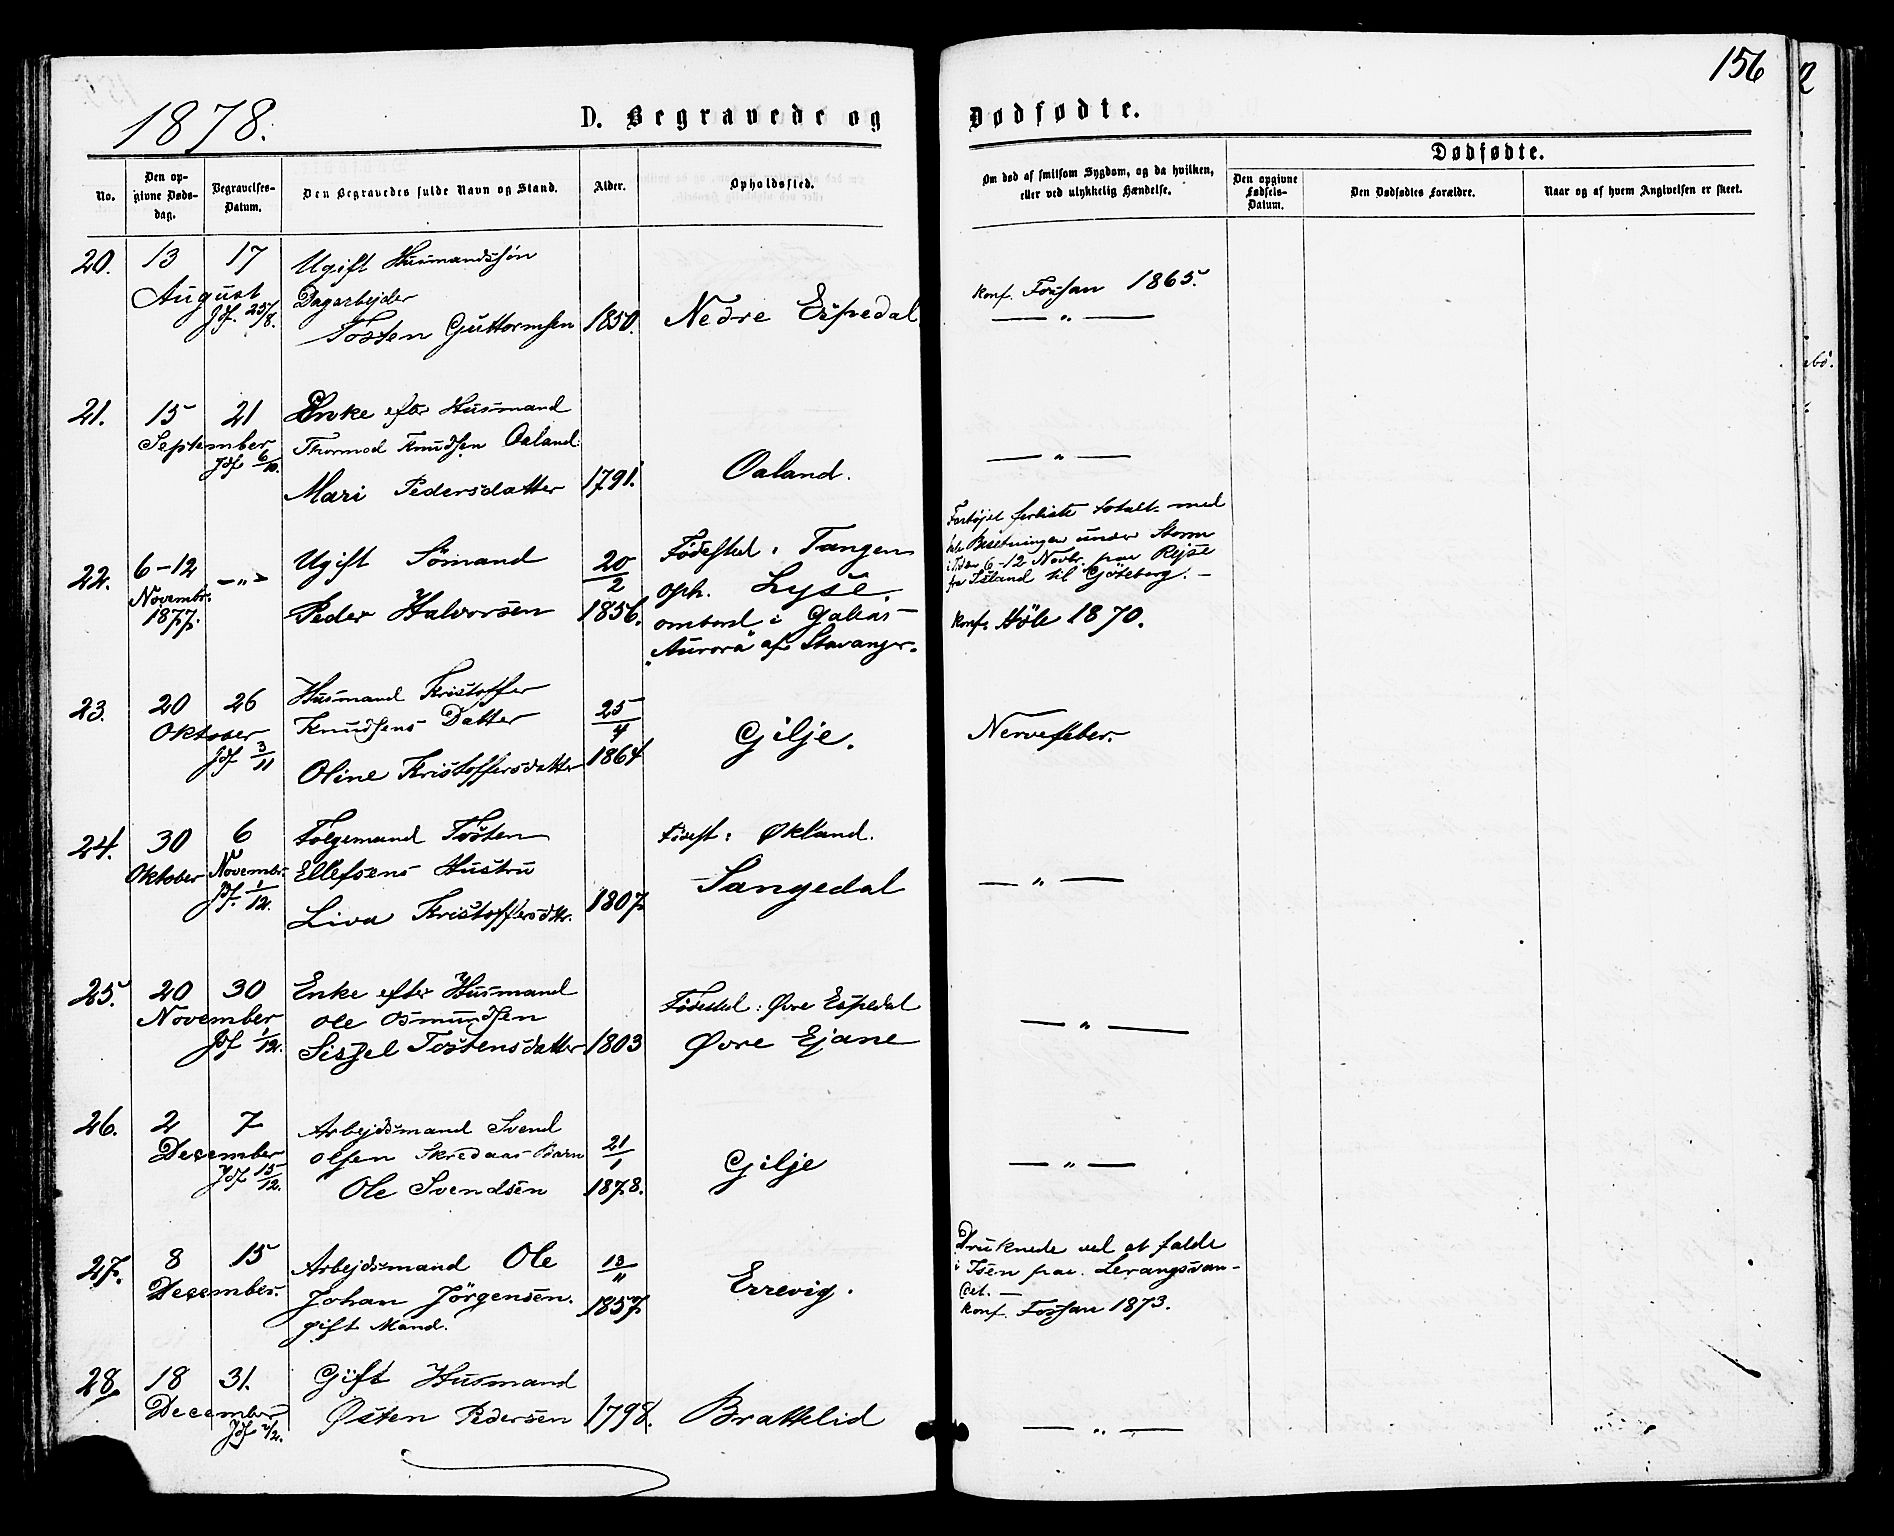 156
1878.
D. Begravede og Dødfødte.
No.
Den opgivne Dødsdag.
Begravelses-Datum.
Den Begravedes fulde Navn og Stand.
Alder.
Opholdssted.
Om død af smitsom Sygdom, og da hvilken, eller ved ulykkelig Hændelse.
Dødfødte.
Den opgivne Fødsels-Datum.
Den Dødfødtes Forældre.
Naar og af hvem Angivelsen er skeet.
20. 13 17 Ugift Husmandssøn
August Dagarbejder
Jdf. 25/8. Tosten Guttormsen 1850. Nedre Espedal.
Konf. Fossan 1865.
— „ —
21. 15 21 Enke efter Husmand
September Thormod Knudsen Oaland.
Jdf 6/10. Mari Pedersdatter 1791. Oaland.
— „ —
22. 6-12 — „ — Ugift Sømand 20/2 Fødested: Tangen
Novembr. 1877. Peder Halvorsen 1856. oph. Lyse,
ombord i Galeas
„Aurora" af Stavanger.
Fartøjet forliste totalt med
hele Besetningen under Storm
i Tiden 6-12 Novbr. paa Rejse
fra Island til Gøteborg. —
Konf. Høle 1870.
23. 20 26 Husmand Kristoffer
Oktober Knudsens Datter 25/4
Jdf 3/11 Oline Kristoffersdatter 1864 Gilje.
Nervefeber.
24. 30 6 Følgemand Tosten Fødest: Økland.
Oktober Novembr. Ellefsens Hustru
Jdf. 1/12. Liva Kristoffersdtr. 1807. Sangedal
— „ —
25. 20 30 Enke efter Husmand Fødested: Øvre Espedal
November Ole Osmundsen
Jdf 1/12. Sissel Tostensdatter 1803 Øvre Ejane
— „ —
26. 2 7 Arbejdsmand Svend
December Olsen Skredaas Barn 21/1
Jdf 15/12. Ole Svendsen 1878. Gilje
— „ —
27. 8 15 Arbejdsmand Ole 13/11
December. Johan Jörgensen. 1857. Errevig.
gift Mand.
Druknede ved at falde
i Isen paa Lerangsvan-
det. —
Konf. Fossan 1873.
28. 18 31. Gift Husmand
December Østen Pedersen 1798. Brattelid
Jdf 2/2.
— „ —